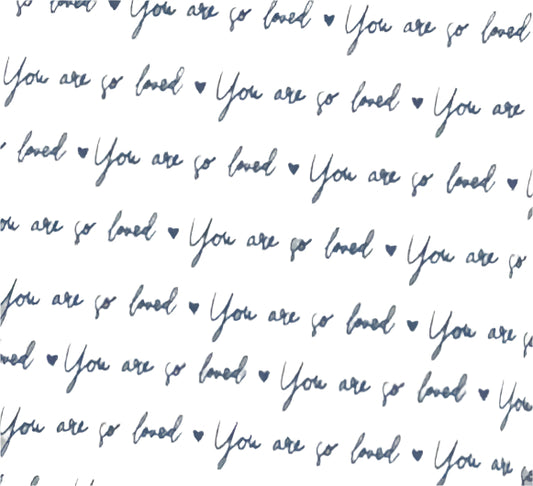 so loved ♥ You are so loved ♥ You are so loved
You are so loved ♥ You are so loved ♥ You are
loved ♥ You are so loved ♥ You are so loved ♥
are so loved ♥ You are so loved ♥ You are so
You are so loved ♥ You are so loved ♥ You are
♥ You are so loved ♥ You are so loved ♥ You
You are so loved ♥ You are so loved ♥ You are so